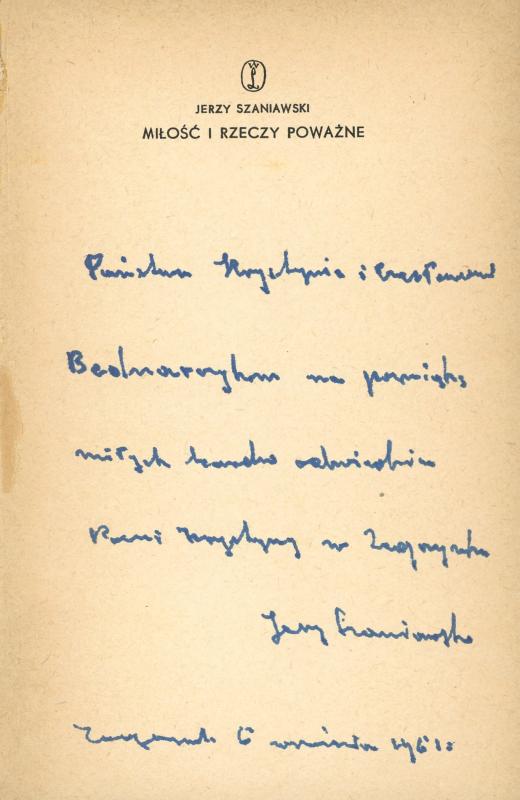 WL
JERZY SZANIAWSKI
MIŁOŚĆ I RZECZY POWAŻNE
Państwu Krystynie i Czesławowi
Bednarczykom na pamiątkę
miłych bardzo odwiedzin
Pani Krystyny w Zegrzynku
Jerzy Szaniawski
Zegrzynek 6 września 1961 r.